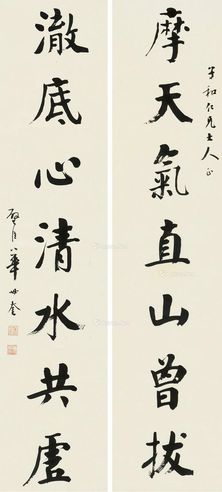 子和仁兄大人正
摩天氣直山曾拔
澈底心清水共虛
璧臣華世奎